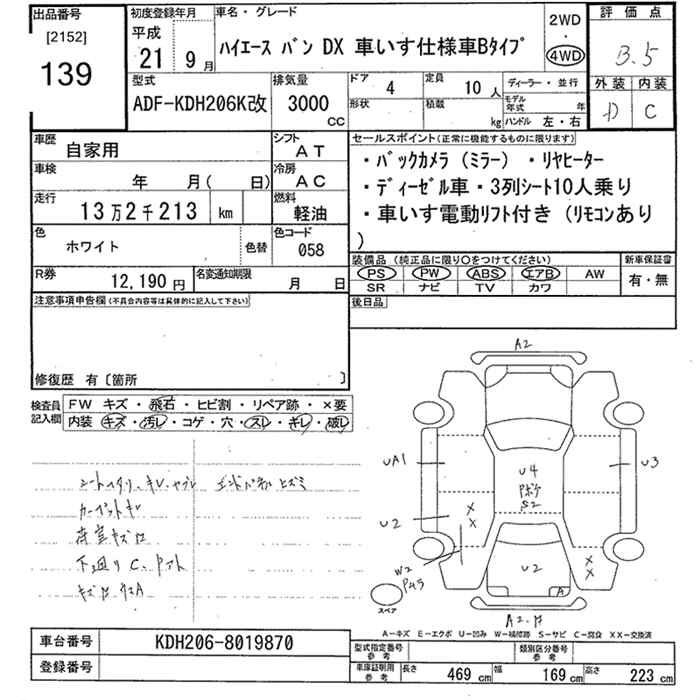 出品番号
[2152]
139
初度登録年月
平成
21 9月
車名・グレード
ハイエース バン DX 車いす仕様車Bタイプ
2WD
・
4WD
評価点
B.5
外装 内装
D C
型式
ADF-KDH206K改
排気量
3000
CC
ドア 4
形状
定員 10人
積載 kg
ディーラー・並行
モデル年式 年
ハンドル 左・右
車歴
自家用
シフト
AT
車検
年 月( 日)
冷房
AC
走行
13万2千213 km
燃料
軽油
色
ホワイト
色替
色コード
058
R券
12,190円
名変通知期限
月 日
セールスポイント(正常に機能するものに限ります)
・バックカメラ(ミラー)・リヤヒーター
・ディーゼル車・3列シート10人乗り
・車いす電動リフト付き(リモコンあり
)
装備品(純正品に限り○をつけてください)
PS PW ABS エアB AW
SR ナビ TV カワ
新車保証書
有・無
後日品
注意事項申告欄(不具合内容等は具体的に記入して下さい)
修復歴 有〔箇所 〕
検査員
記入欄
FW キズ・飛石・ヒビ割・リペア跡・×要
内装 キズ・汚レ・コゲ・穴・スレ・キレ・破レ
カーペットキレ
荷室キズ
A2
UA1
U4
U3
S2
U2
×
×
W2
U2
A
×
×
スペア
A2
A-キズ E-エクボ U-凹み W-補修跡 S-サビ C-腐食 XX-交換済
車台番号
KDH206-8019870
登録番号
型式指定番号
参考
類別区分番号
参考
車庫証明用
参考
長さ 469cm 幅 169cm 高さ 223cm